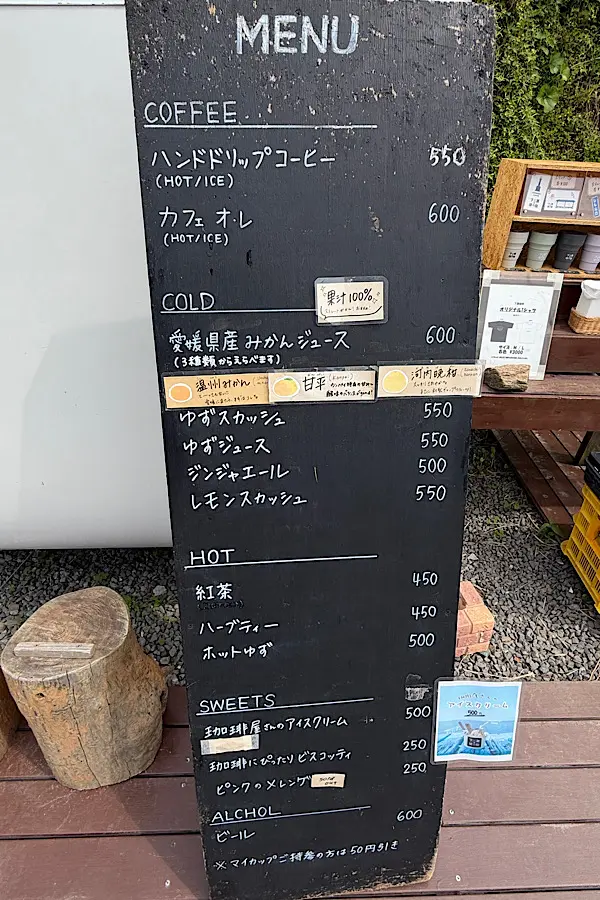 MENU
COFFEE
ハンドドリップコーヒー 550
(HOT/ICE)
カフェ オ・レ 600
(HOT/ICE)
COLD
果汁100%
愛媛県産 みかんジュース 600
(3種類からえらべます)
温州みかん
甘平
河内晩柑
ゆずスカッシュ 550
ゆずジュース 550
ジンジャエール 500
レモンスカッシュ 550
HOT
紅茶 450
ハーブティー 450
ホットゆず 500
SWEETS
珈琲屋さんのアイスクリーム 500
珈琲にぴったり ビスコッティ 250
ピンクのメレンゲ 250
SOLD OUT
ALCHOL
ビール 600
※マイカップご持参の方は50円引き
アイスクリーム
500
オリジナルTシャツ